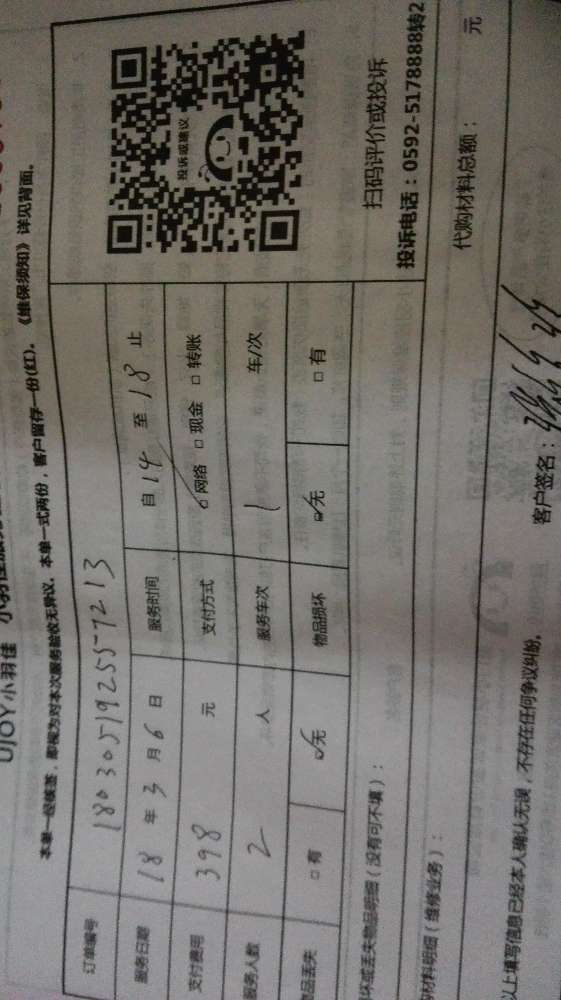 UJOY小羽佳
本单一经核签，即视为对本次服务验收无异议，本单一式两份，客户留存一份(红)。《维保须知》详见背面。
订单编号 180305192557213
服务日期 18 年 3 月 6 日 服务时间 自 14 至 18 止
支付费用 398 元 支付方式 ☑网络 □现金 □转账
服务人数 2 人 服务车次 1 车/次
品丢失 □有 ☑无 物品损坏 ☑无 □有
投诉或建议
扫码评价或投诉
投诉电话：0592-5178888转2
坏或丢失物品明细（没有可不填）：
材料明细（维修业务）：
代购材料总额： 元
以上填写信息已经本人确认无误，不存在任何争议纠纷。
客户签名：